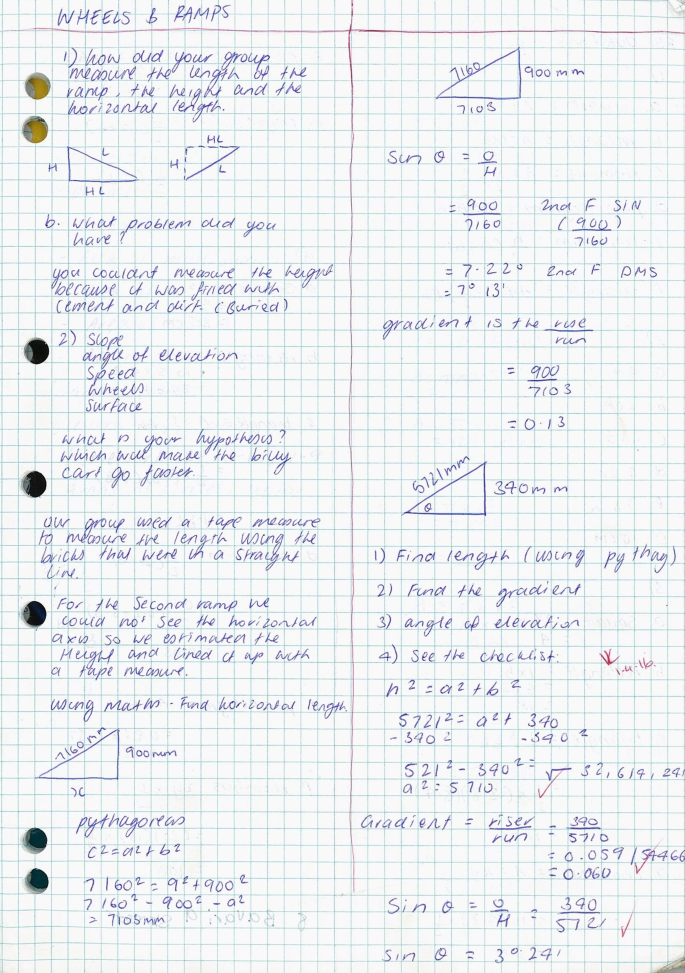 WHEELS & RAMPS
1) how did your group
measure the length of the
ramp, the height and the
horizontal length.
H
L
HL
HL
H
L
b. what problem did you
have?
you couldnt measure the height
because it was filled with
cement and dirt. (Buried)
2) Slope
angle of elevation
Speed
Wheels
Surface
what is your hypothesis?
which will make the billy
cart go faster.
our group used a tape measure
to measure the length using the
bricks that were in a straight
line.
For the Second ramp we
could not see the horizontal
axis so we estimated the
Height and lined it up with
a tape measure.
using maths - Find horizontal length.
7160 mm
900mm
x
pythagoreas
c² = a² + b²
7160² = a² + 900²
7160² - 900² - a²
= 7103mm
7160
900mm
7103
Sin θ = O/H
= 900/7160 2nd F SIN (900/7160)
= 7.22° 2nd F DMS
= 7° 13'
gradient is the rise/run
= 900/7103
= 0.13
5721mm
340mm
θ
1) Find length (using pythag)
2) Find the gradient
3) angle of elevation
4) See the checklist.
h² = a² + b²
5721² = a² + 340
-340² -340²
521² - 340² = √ 32,614,241
a² = 5710
Gradient = riser/run = 340/5710
= 0.059
= 0.060
Sin θ = O/H = 340/5721
sin θ = 3°.24'